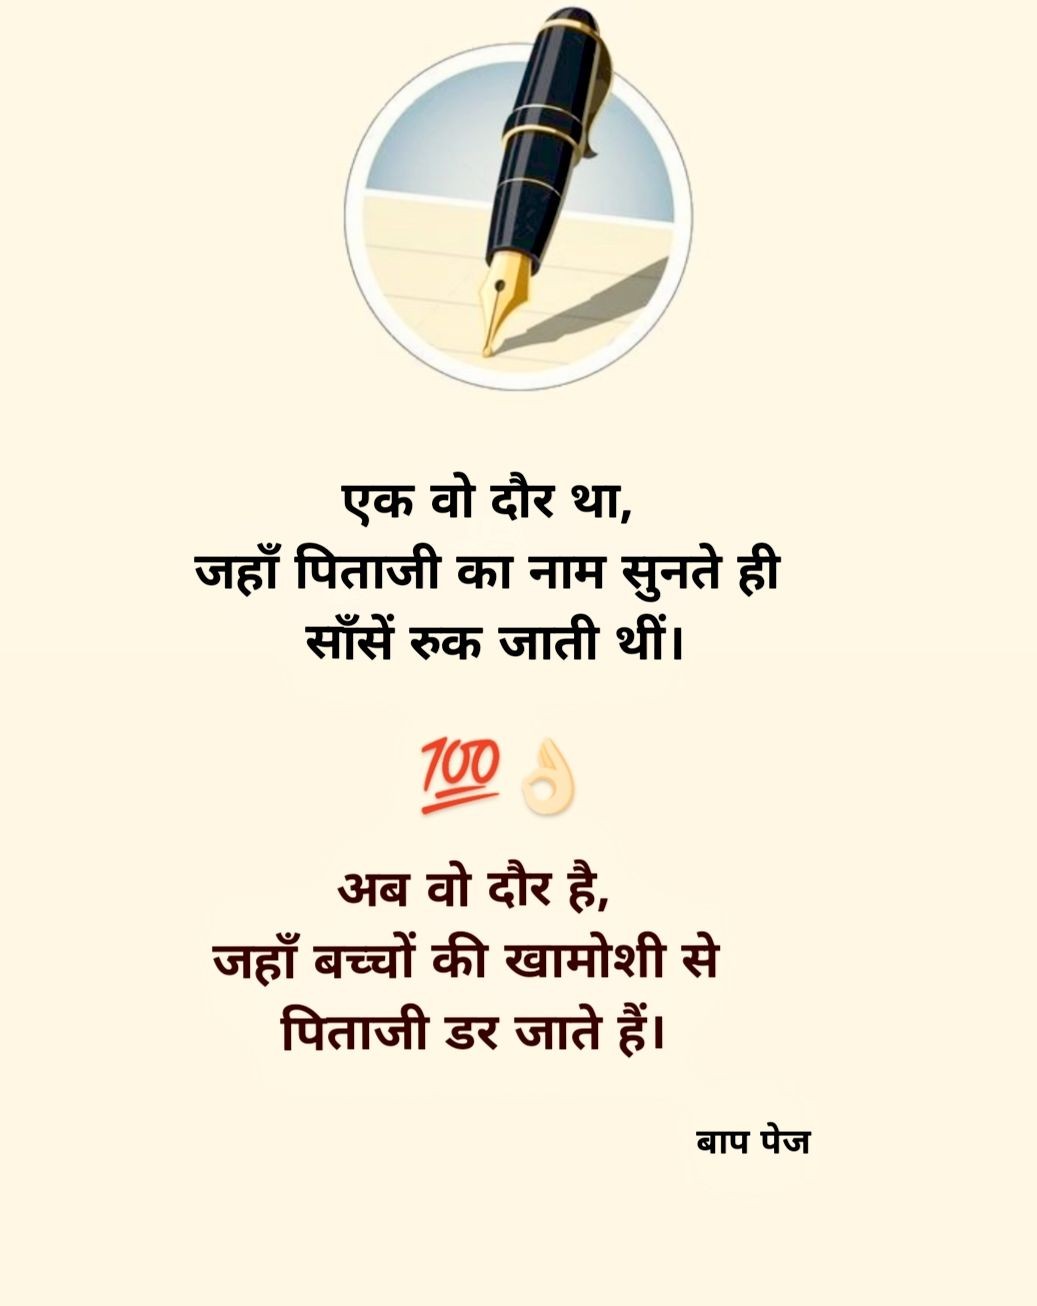 एक वो दौर था,
जहाँ पिताजी का नाम सुनते ही
साँसें रुक जाती थीं।
💯👌🏻
अब वो दौर है,
जहाँ बच्चों की खामोशी से
पिताजी डर जाते हैं।
बाप पेज